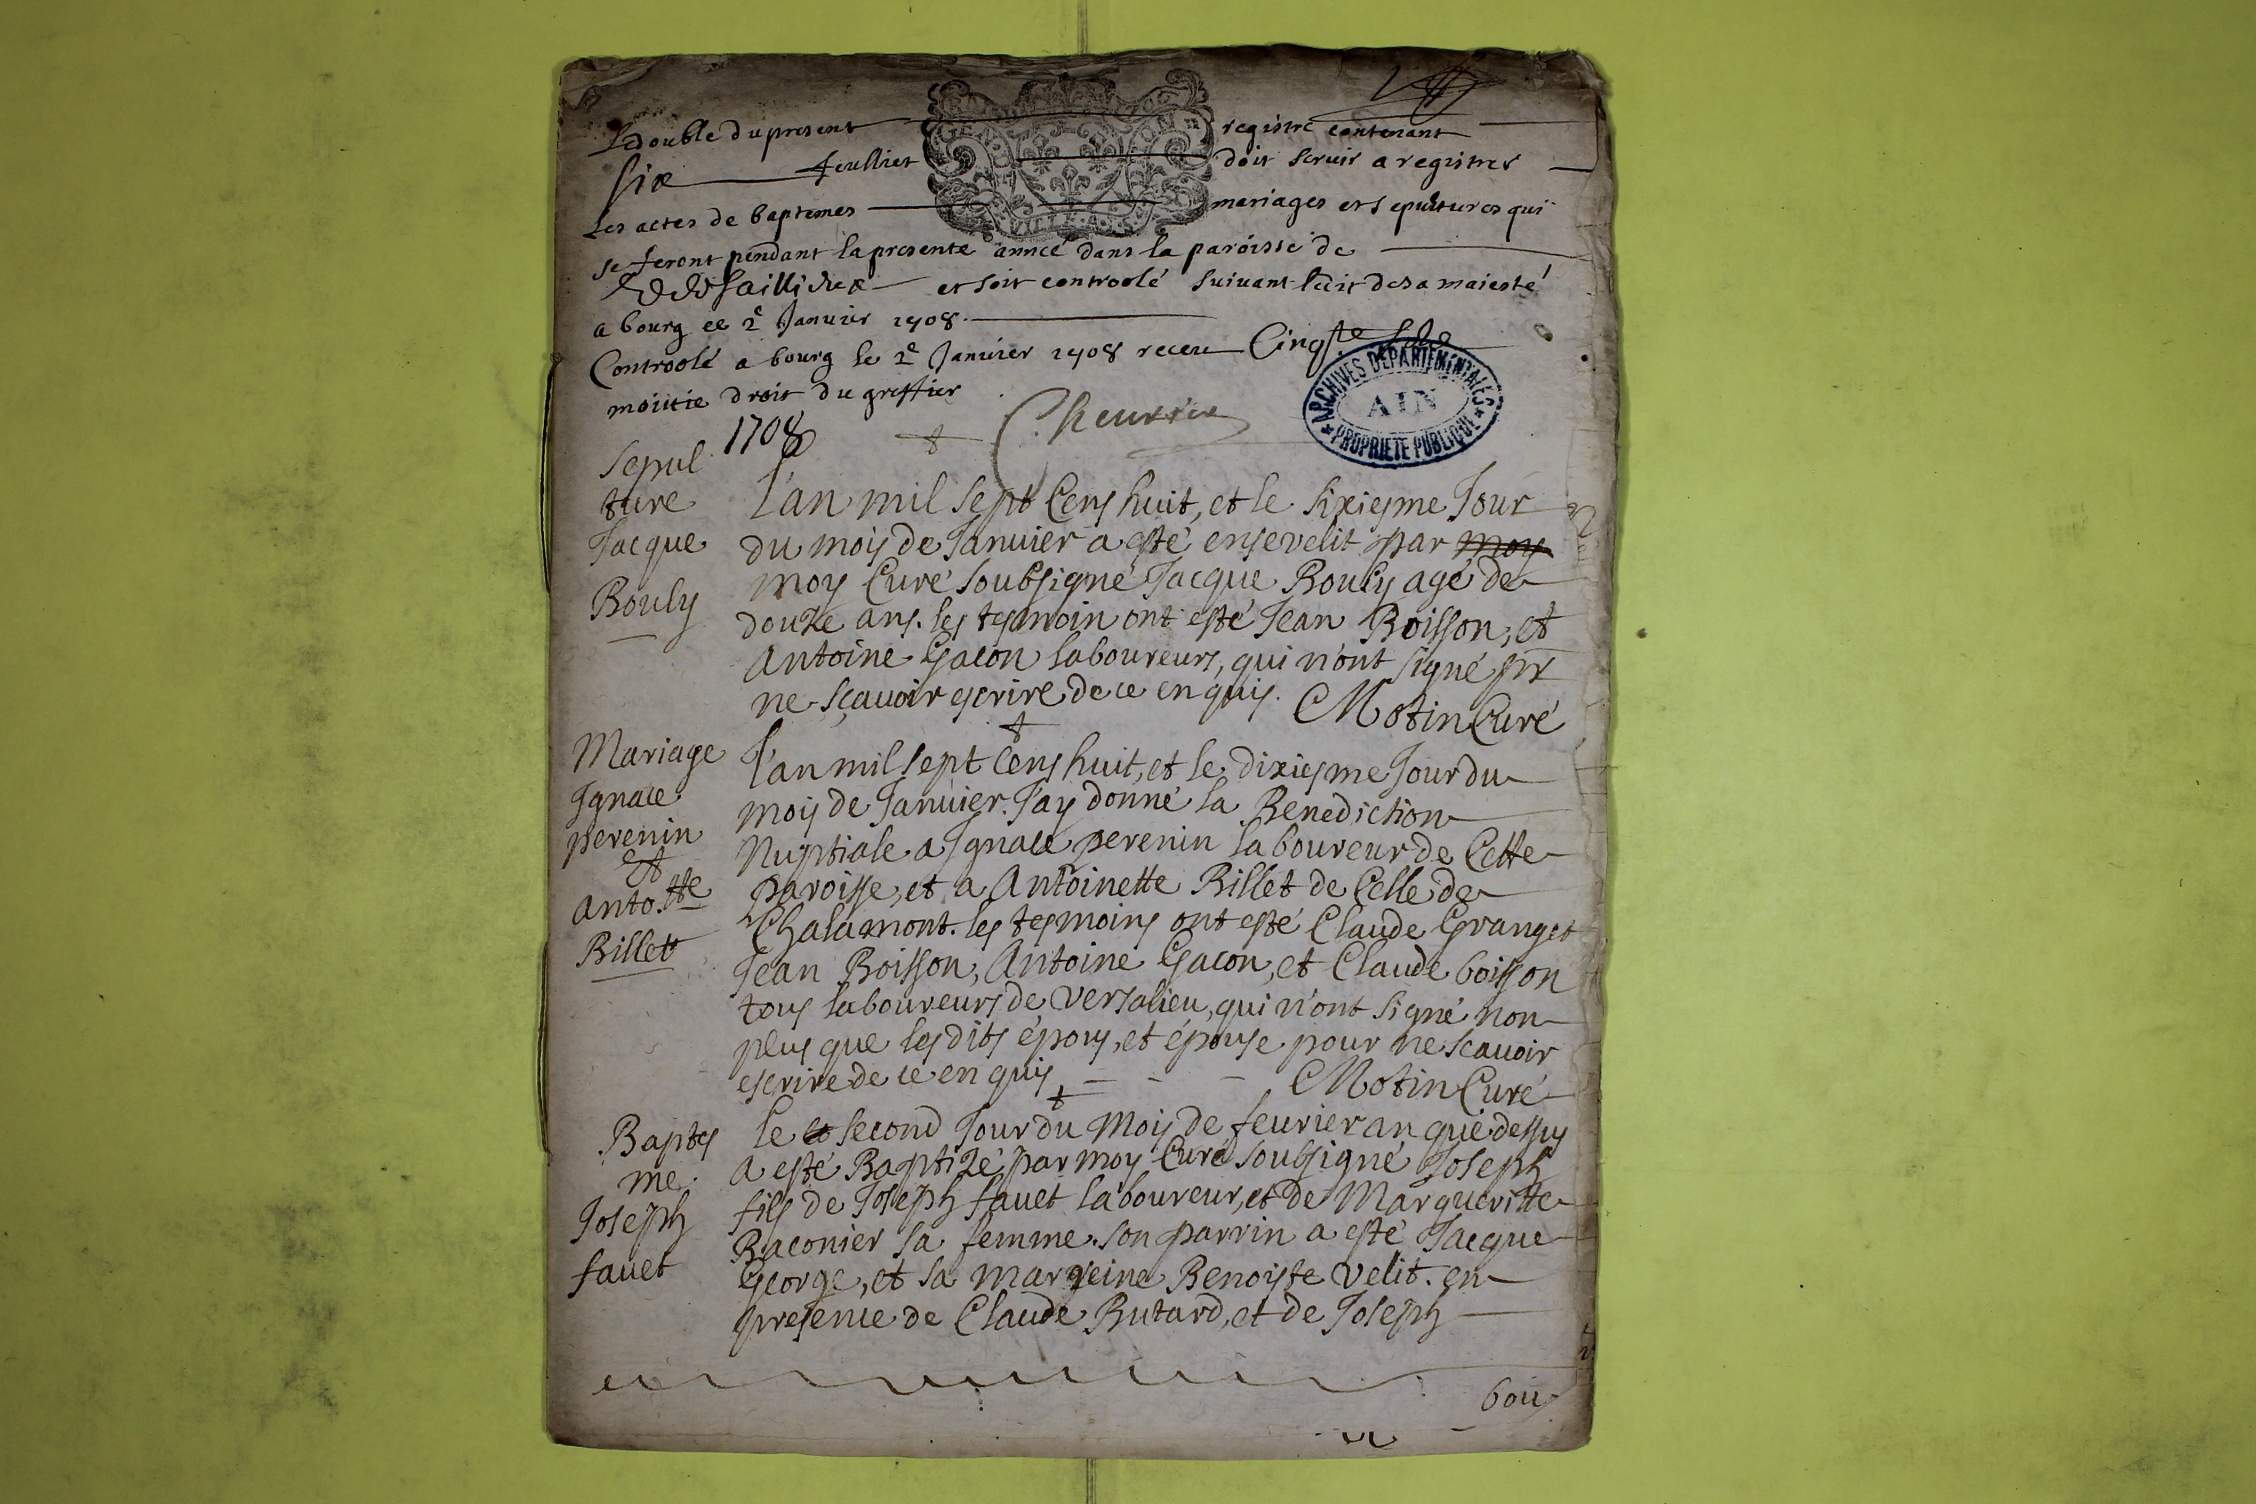 Le double du present registre contenant
six feulliet doit seruir a registrer
Les actes de baptemes mariages et sepultures qui
se feront pendant la presente année dans la paroisse de
et soit controolé suiuant ledit de sa maiesté
a bourg ce 2e Januier 1708.
Controolé a bourg le 2e Januier 1708 receu Cinqte
moitie droit du greffier
ARCHIVES DEPARTEMENTALES
AIN
PROPRIETE PUBLIQUE
1708 Cheurier
Sepul
ture
Jacque
Bouly
L'an mil sept Cens huit, et le sixiesme Jour
du mois de Januier a esté ensevelit par moy
moy Curé soubsigné Jacque Bouly agé de
douze ans. les tesmoin ont esté Jean Boisson, et
Antoine Gacon laboureurs, qui n'ont signé pr
ne sçauoir escrire de ce enquis. Motin Curé
Mariage
Ignace
perenin
et
anto.tte
Billet
L'an mil sept Cens huit, et le dixiesme Jour du
mois de Januier. J'ay donné la Benediction
Nuptiale a Ignace perenin laboureur de Cette
paroisse, et a Antoinette Billet de Celle de
Chalamont. les tesmoins ont esté Claude Granget
Jean Boisson, Antoine Gacon, et Claude boisson
tous laboureurs de Versalieu, qui n'ont signé non
plus que lesdits épous, et épouse pour ne scauoir
escrire de ce enquis Motin Curé
Baptes
me.
Joseph
fauet
Le second Jour du Mois de feurier an que dessus
a esté Baptizé par moy Curé soubsigné Joseph
fils de Joseph fauet laboureur, et de Margueritte
Baconier sa femme. son parrin a esté Jacque
George, et sa marreine Benoiste Velit. en
presence de Claude Butard, et de Joseph